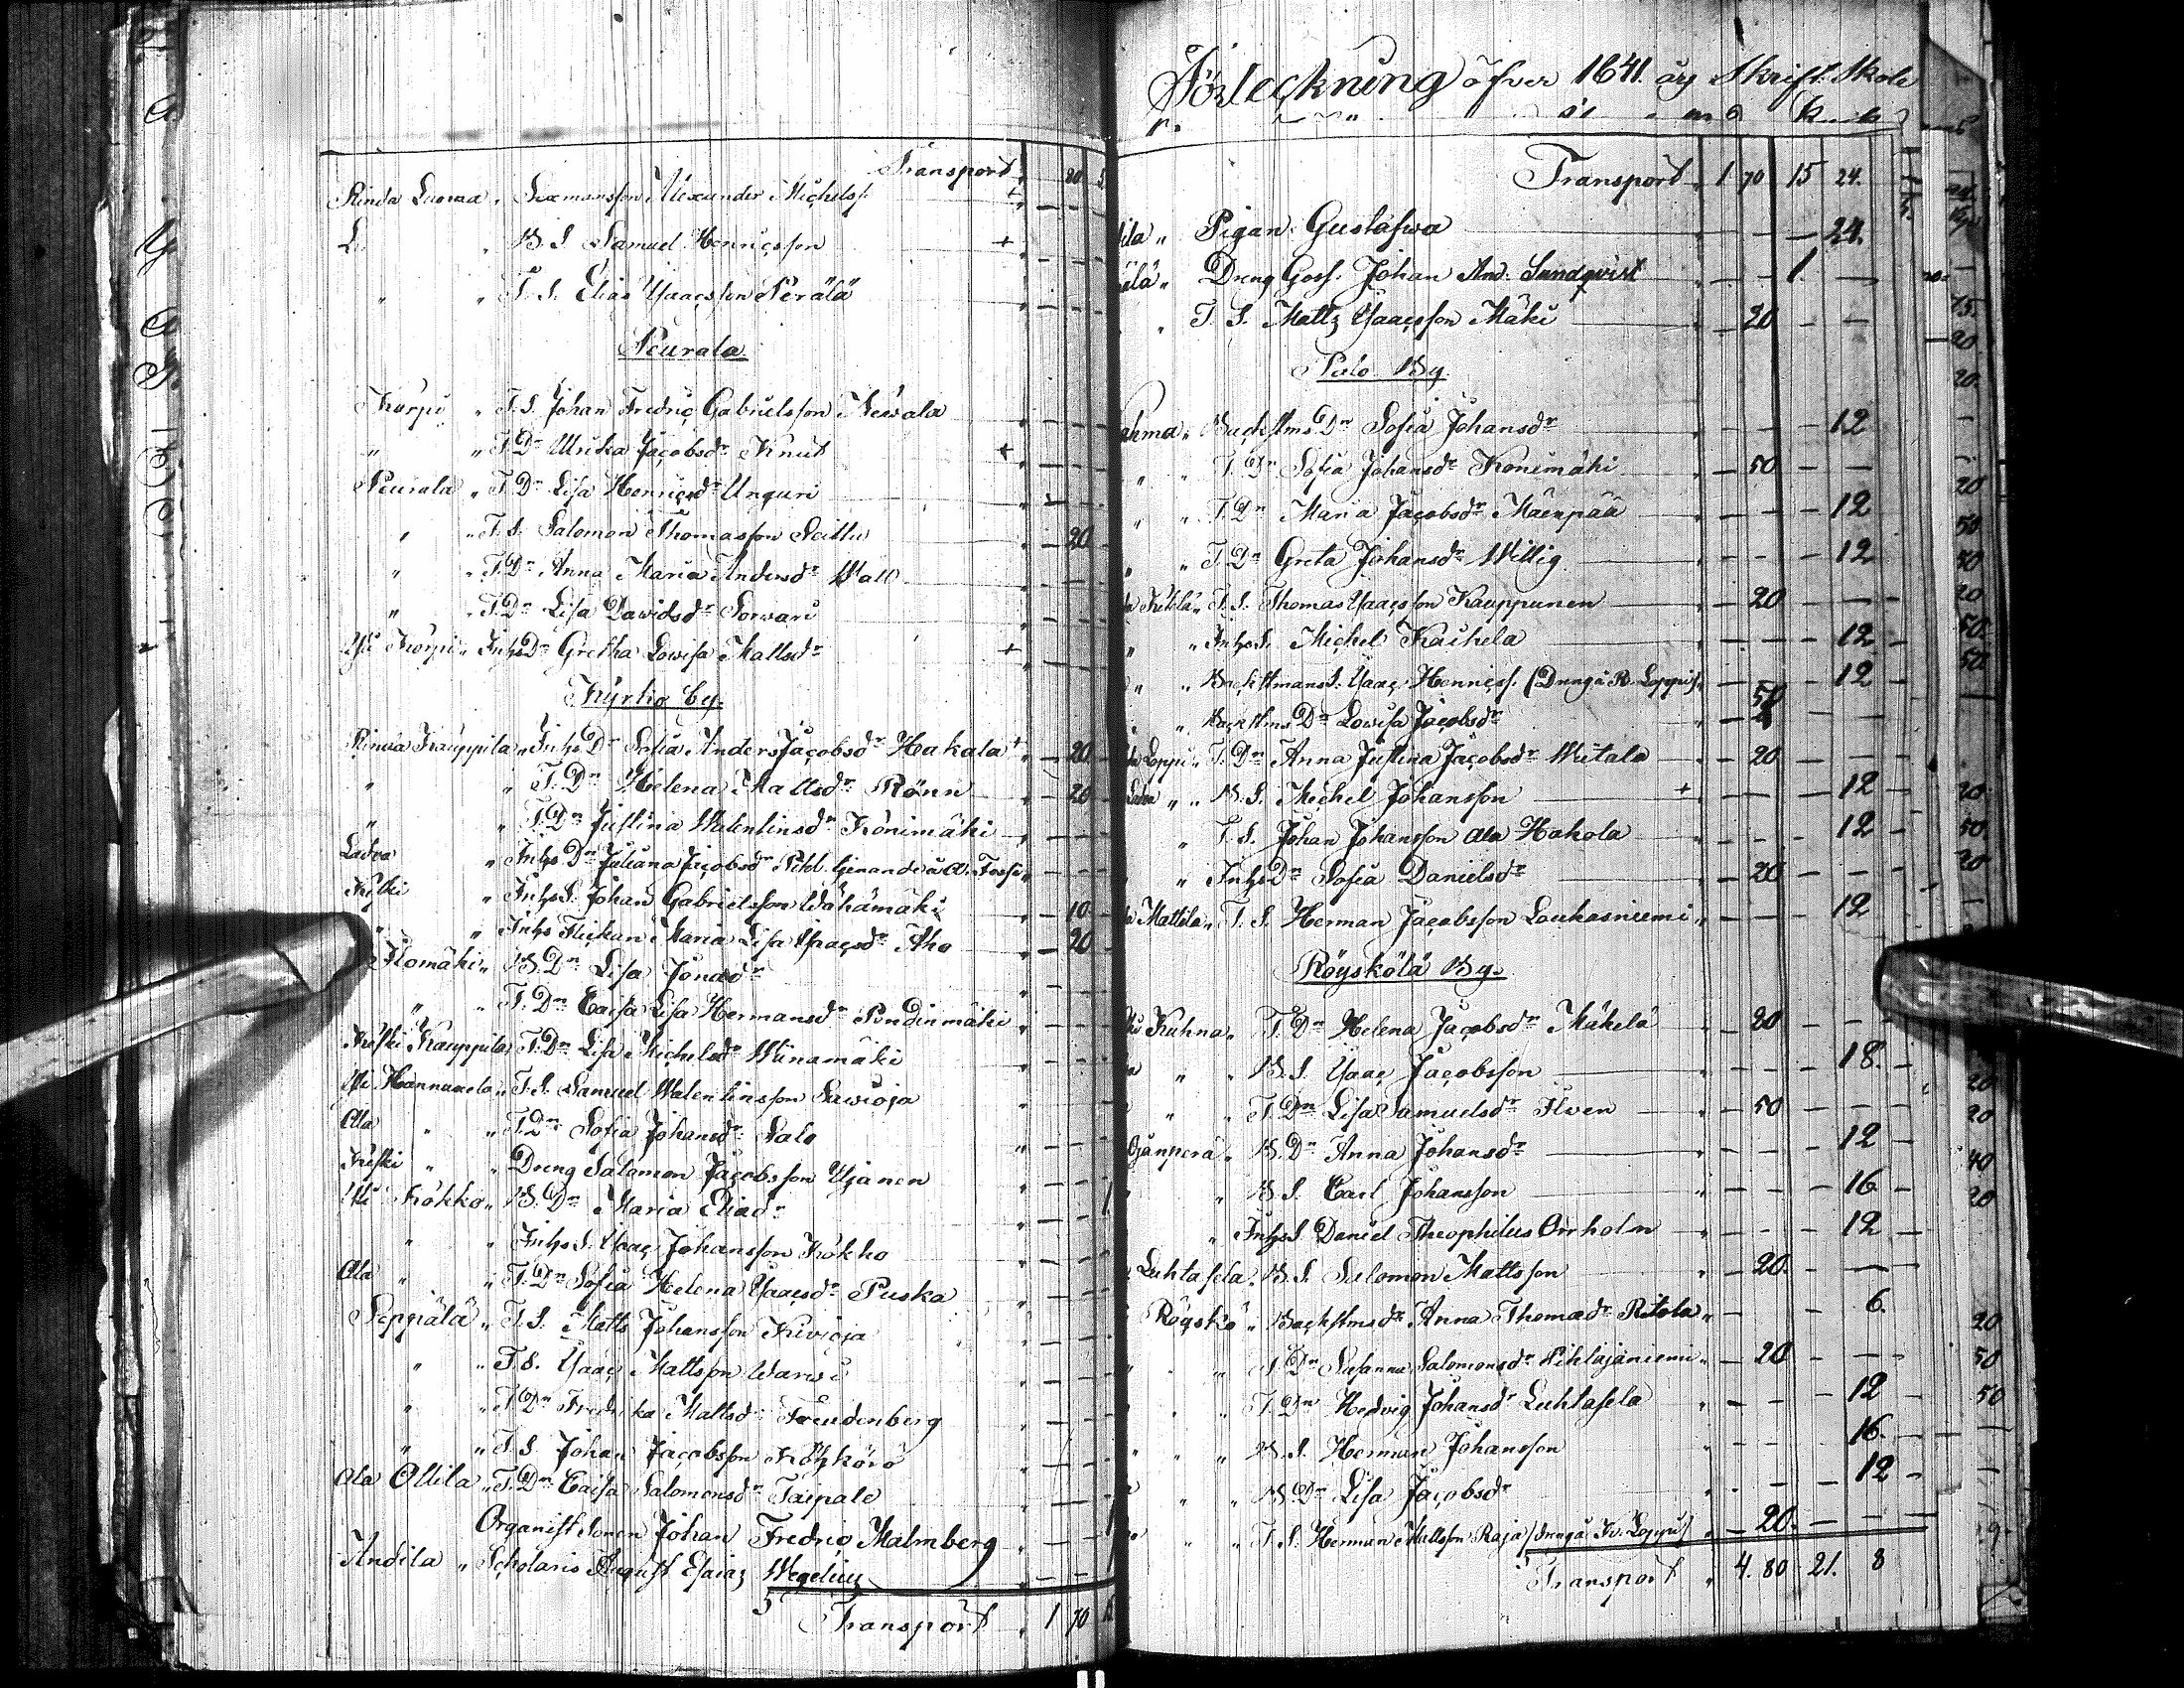 Transport 20
Rinda Luoma " Sexmansson Alexander Michelss. +
L " B. S. Samuel Henricsson +
" " T. S. Elias Ysaacsson Perälä
Peurala
Korpi " T. S. Johan Fredric Gabrielsson Newala
" " T. Dr Ulrika Jacobsdr Knut +
Peurala " T. Dr Lisa Henricsdr Unguri
" " T. S. Salomon Thomasson 20
" " T. Dr Anna Maria Andersdr Wall
" " T. Dr Lisa Davidsdr Sorvari
Yli Korpi " Inhs Dr Gretha Lovisa Mattsdr +
Kyrko by.
Rinda Kauppila " Inhs Dr Sofia Anders Jacobsdr Hakala + 20
" " T. Dr Helena Mattsdr Rönn 20
" " T. Dr Justina Walentinsdr Könimäki
Ladva " Inhs Dr Juliana Jacobsdr
Keski " Inhs S. Johan Gabrielsson Wähämäki 10
" " Inhs Flickan Maria Lisa Ysaacsdr Aho 20
Ilomäki " B. Dr Lisa Jonasdr
" " T. Dr Caisa Lisa Hermansdr Pendinmäki
Keski Kauppila " T. Dr Lisa Michelsdr Wiinamäki
Yli Hannuxela " T. S. Samuel Walentinsson Savioja
Ala " " T. Dr Sofia Johansdr Salo
Keski " " Dreng Salomon Jacobsson Ujanen
Yli Kökko " B. Dr Maria Eliasdr
" " Inhs S. Ysaac Johansson Kökko
Ala " " T. Dr Sofia Helena Ysaacsdr Puska
Seppälä " T. S. Matts Johansson Kivioja
" " T. S. Ysaac Mattsson Warvi
" " T. Dr Fredrika Mattsdr Freudenberg
" " T. S. Johan Jacobsson Köykörö
Ala Ollila " T. Dr Caisa Salomonsdr Taipale
Organist Sonen Johan Fredric Malmberg
Andila " Scholaris August Esaias Wegelius
Transport 1 70
Förteckning öfver 1841 års Skrift Skole
Transport 1 70 15 24.
ila " Pigan Gustafwa 24.
älä " Dreng Goss. Johan And. Sundqvist 1.
" T. S. Matts Ysaacsson Mäki 20
Palo By.
ahma " Backstms Dr Sofia Johansdr 12
" " T. Dr Sofia Johansdr Könimäki 50
" " T. Dr Maria Jacobsdr Mäenpää 12
" " T. Dr Greta Johansdr Wittig 12
" T. S. Thomas Ysaacsson Kauppunen 20
" " Inhs S. Michel Kaihela 12
" " Backstmans S. Ysaac Henricss. (Dreng à R. Loppi) 12
" " Backstms Dr Lovisa Jacobsdr 50
Loppi " T. Dr Anna Justina Jacobsdr Wietala 20
Ladva " " B. S. Michel Johansson + 12
" T. S. Johan Johansson Ala Hakola 12
" Inhs Dr Sofia Danielsdr 20
Mattila " T. S. Herman Jacobsson Loukasniemi 12
Röyskölä By.
Kuhna " T. Dr Helena Jacobsdr Mäkelä 20
" " B. S. Ysaac Jacobsson 18.
" " T. Dr Lisa Samuelsdr Ilven 50
Ojanperä " B. Dr Anna Johansdr 12
" " B. S. Carl Johansson 16
" Inhs S. Daniel Theophilus Orrholm 12
Luhtasela " B. S. Salomon Mattsson 20.
Röyskö " Backstms dr Anna Thomasdr Ritola 6.
" " T. Dr Susanna Salomonsdr Pihlajaniemi 20
" " T. Dr Hedvig Johansdr Luhtasela 12
" " B. S. Herman Johansson 16.
" " B. Dr Lisa Jacobsdr 12
" " T. S. Herman Mattsson Raja (dreng à Loppi) 20.
Transport 4. 80 21. 8